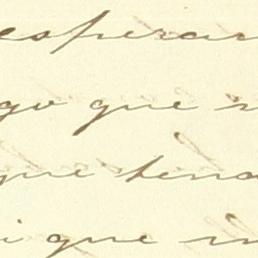 esperar
go que
que tena
i que